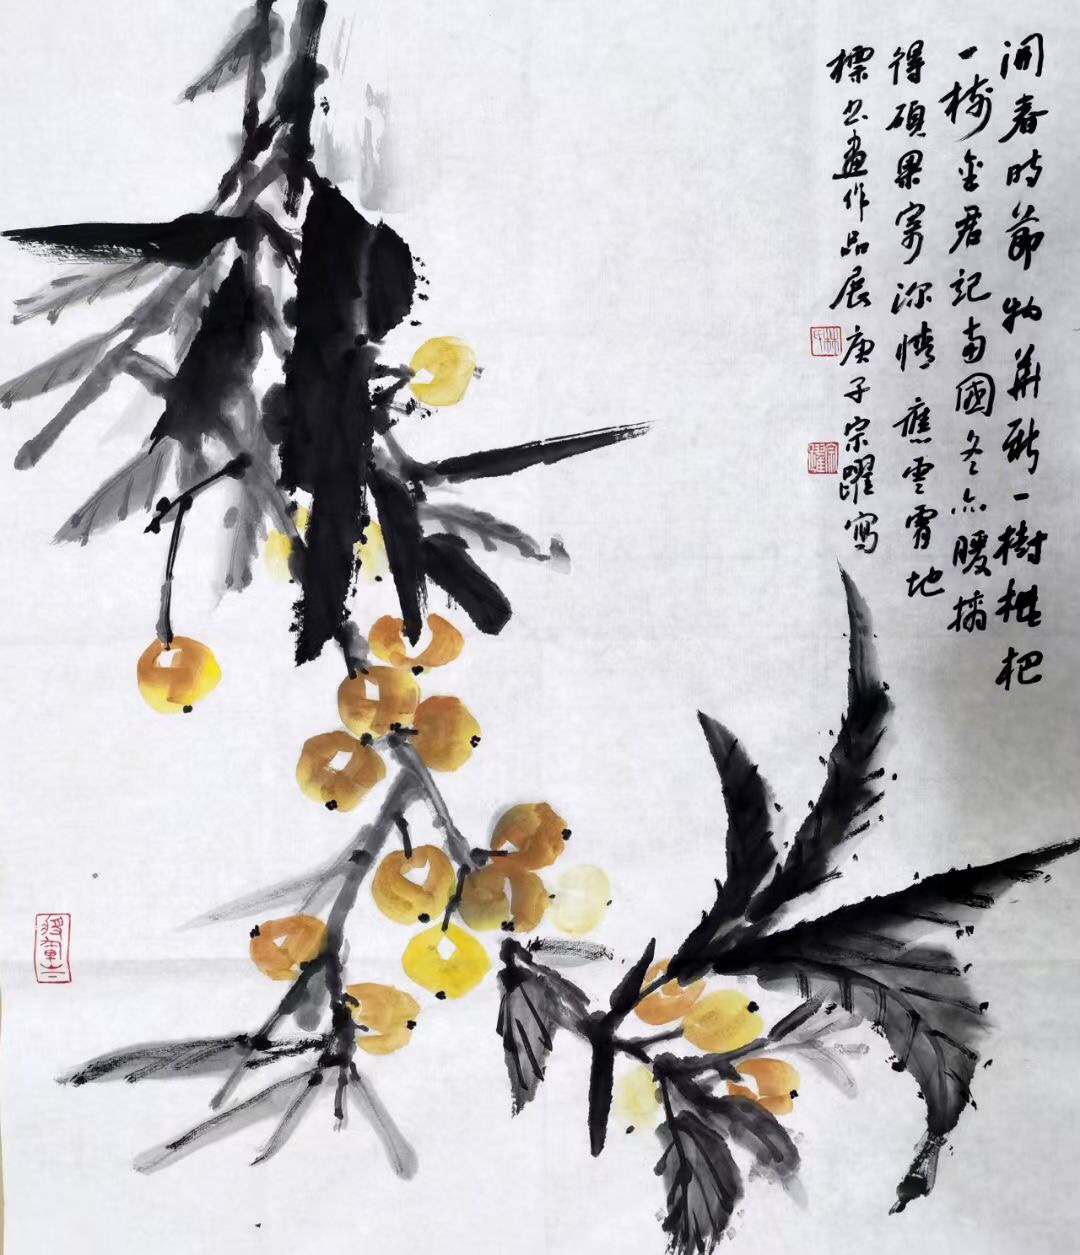 開春時節物華新一樹枇杷
一樹金君記南國冬亦暖摘
得碩果寄深情應雲霄地
標書畫作品展庚子宗躍寫